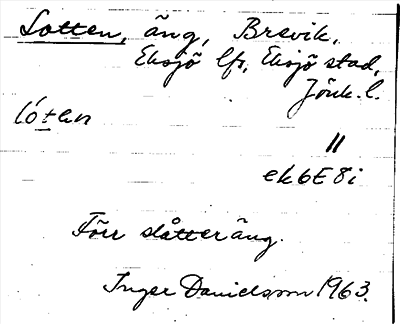 Lotten, äng, Brevik,
Eksjö lfs, Eksjö stad,
Jönk. l.
lót̲en
〃
ek 6E8i
Förr slåtteräng.
Inger Danielsson 1963.